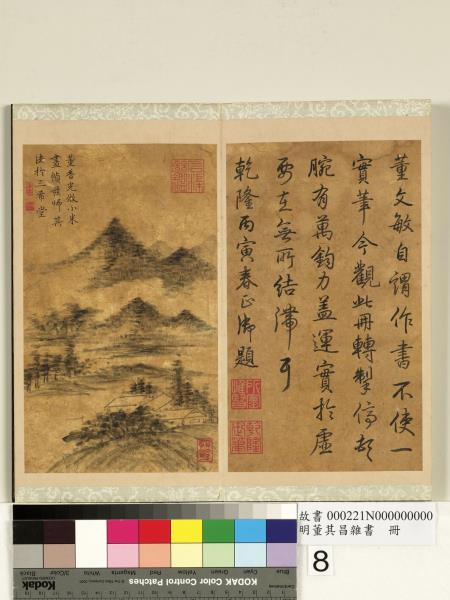 董文敏自謂作書不使一
實筆今觀此冊轉掣停頓
腕有萬鈞力蓋運實於虛
要在無所結滯耳
乾隆丙寅春正御題
乾隆
董香光倣小米
畫續其師其
法於三希堂
故書 000221N000000000
明董其昌雜書 冊
8
Blue
Cyan
Green
Yellow
Red
Magenta
White
3/Color
Black
KODAK Color Control Patches